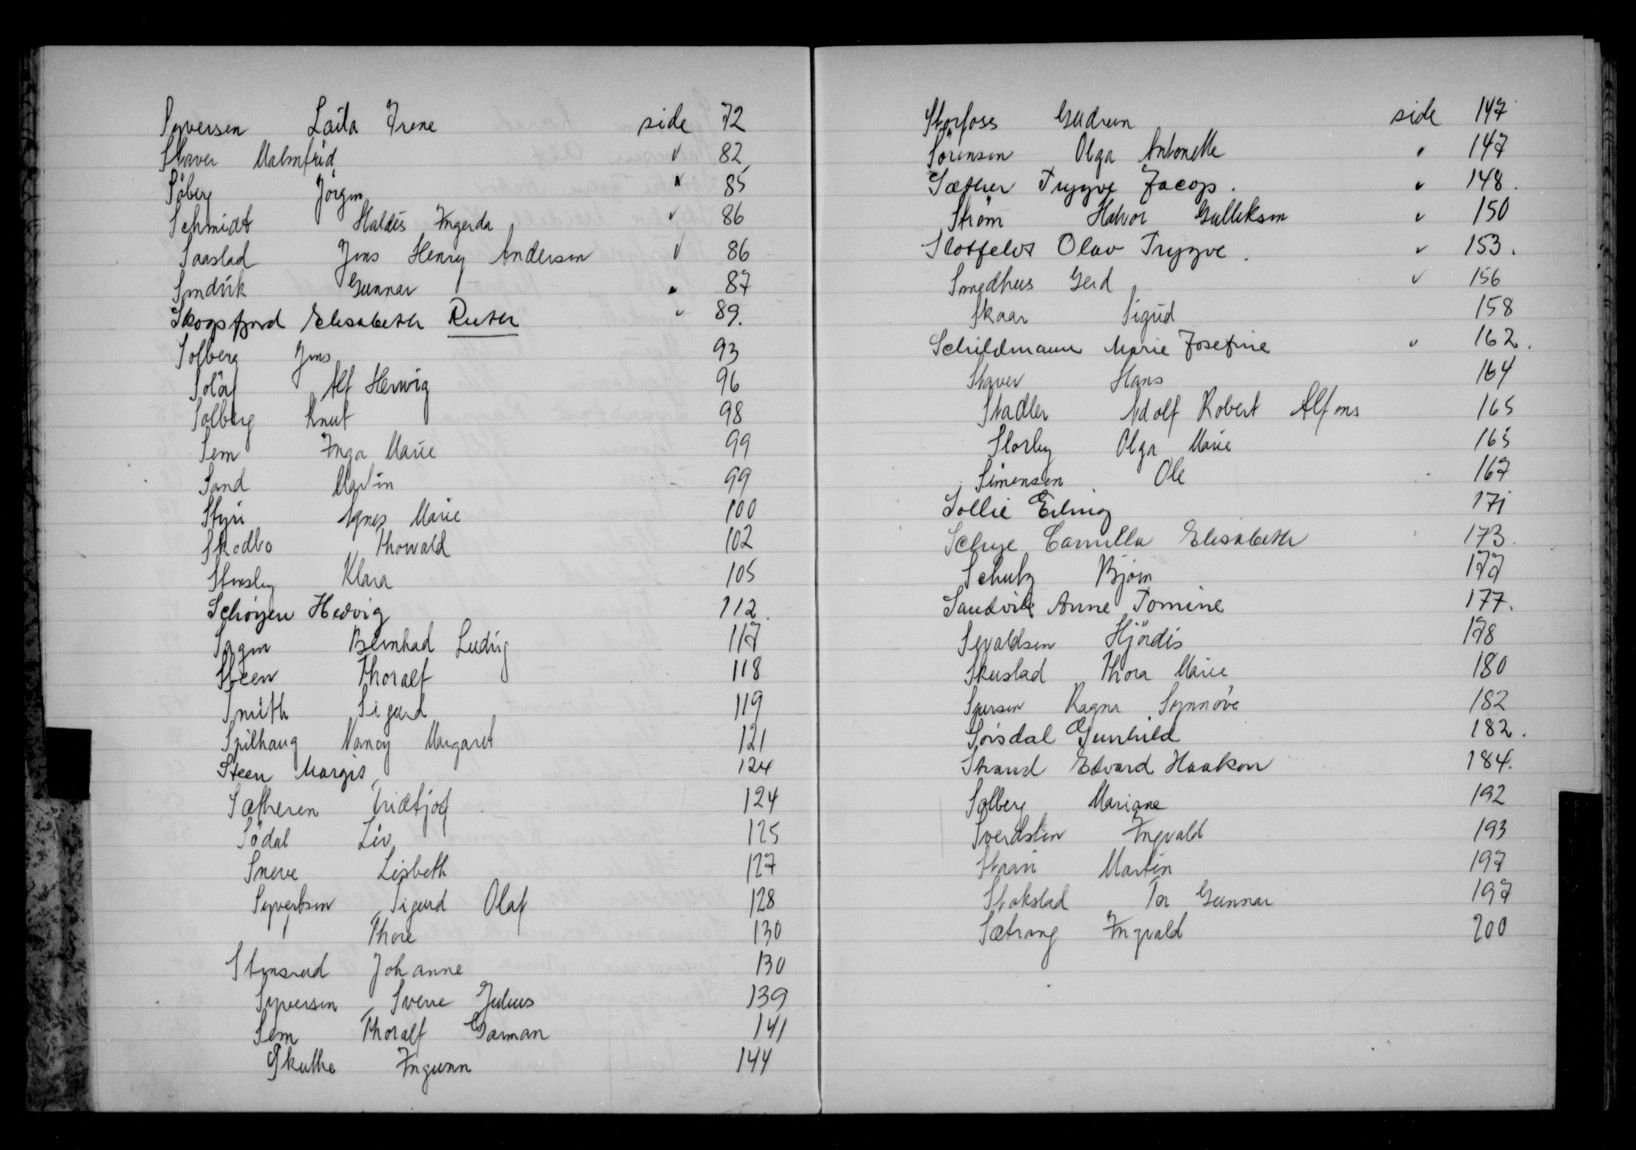 Syversen Laila Irene side 72
Staver Malmfrid " 82
Söberg Jörgen " 85
Schmidt Haldis Ingerda " 86
Saastad Jens Henry Andersen " 86
Smdvik Gunnar " 87
Skogsfjord Elisabeth Ruth " 89.
Solberg Jens 93
Soløy Alf Herwig 96
Solberg Knut 98
Sem Inga Marie 99
Sand Martin 99
Styri Agnes Marie 100
Skodbo Thorvald 102
Stensby Klara 105
Schøyen Hedvig 112.
Sagen Bernhad Ludvig 117
Steen Thoralf 118
Smith Sigurd 119
Spilhaug Nancy Margaret 121
Steen Margis 124
Sætheren Fridtjof 124
Södal Liv 125
Sneve Lisbeth 127
Syvertsen Sigurd Olaf 128
Thore 130
Stensrud Johanne 130
Syversen Sverre Julius 139
Sem Thoralf Garman 141
Skuthe Ingunn 144
Storfoss Gudrun side 147
Sörensen Olga Antonette " 147
Sæther Trygve Jacop. " 148.
Ström Halvor Gulliksen " 150
Slotfeldt Olav Trygve. " 153.
Smedhus Gerd " 156
Skaar Sigrid 158
Schildmann Marie Josefine " 162.
Staver Hans 164
Stadler Adolf Robert Alfons 165
Storby Olga Marie 165
Simensen Ole 167
Sollie Erling 171
Schye Camilla Elisabeth 173.
Schutz Bjørn 177
Sandvik Anne Tomine 177.
Sevaldsen Hjördis 178
Skustad Thora Marie 180
Syversen Ragna Synnöve 182
Sørsdal Gunhild 182.
Strand Edvard Haakon 184.
Solberg Mariane 192
Sverdsten Ingvald 193
Martin 197
Stokstad Tor Gunnar 197
Sætrang Ingvald 200